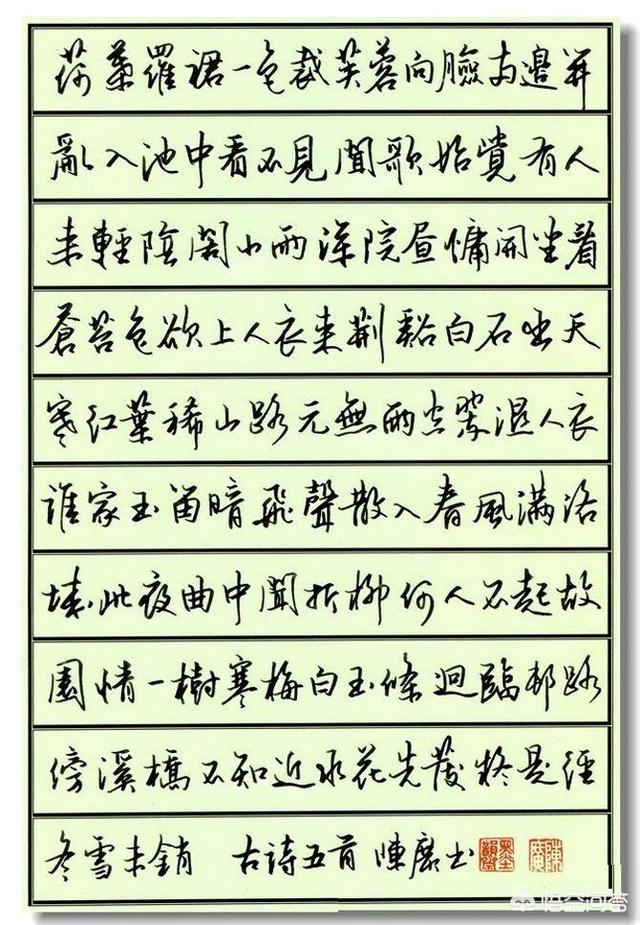 荷葉羅裙一色裁芙蓉向臉兩邊開
亂入池中看不見聞歌始覺有人
来輕陰閣小雨深院晝慵開坐看
蒼苔色欲上人衣来荆谿白石出天
寒紅葉稀山路元無雨空翠濕人衣
誰家玉笛暗飛聲散入春風滿洛
城此夜曲中聞折柳何人不起故
園情一樹寒梅白玉條迥臨邨路
傍溪橋不知近水花先發疑是經
冬雪未銷 古詩五首 陳 书
悟空问答